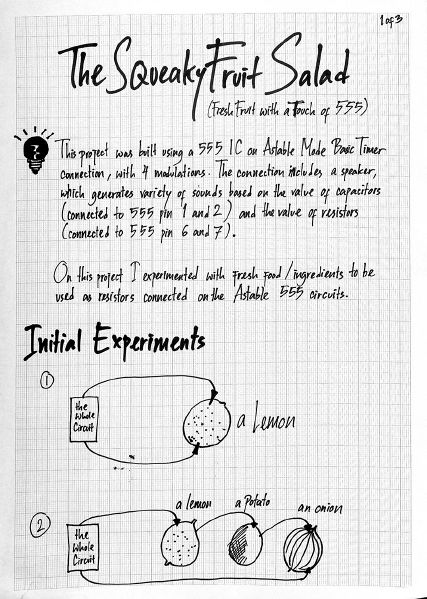 1 of 3
The Squeaky Fruit Salad
(Fresh Fruit with a Touch of 555)
This project was built using a 555 IC on Astable Mode Basic Timer
connection, with 4 modulations. The connection includes a speaker,
which generates variety of sounds based on the value of capacitors
(connected to 555 pin 1 and 2) and the value of resistors
(connected to 555 pin 6 and 7).
On this project I experimented with fresh food/ingredients to be
used as resistors connected on the Astable 555 circuits.
Initial Experiments
1
the Whole Circuit
a Lemon
2
the Whole Circuit
a lemon
a Potato
an onion